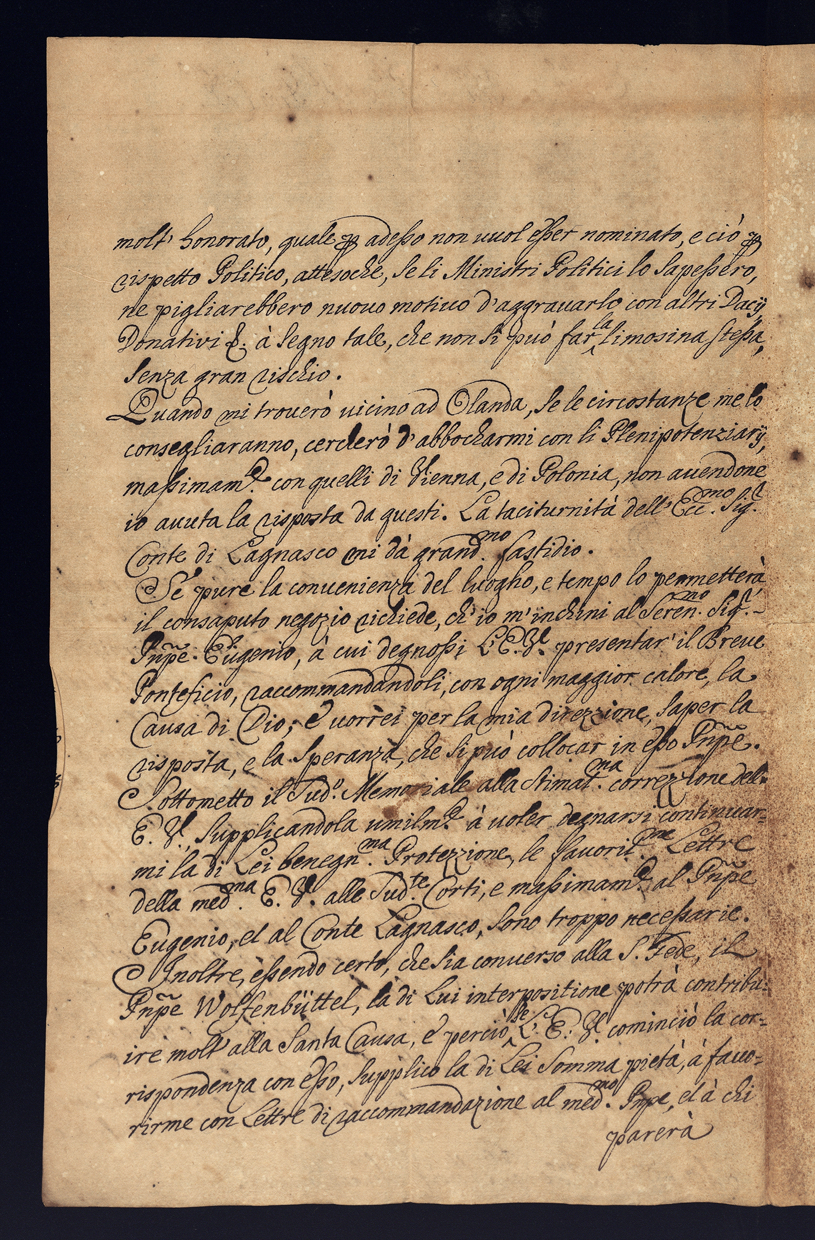 molt' honorato, quale p adesso non vuol esser nominato, e ciò p
rispetto Politico, attesoche, se li Ministri Politici lo sapessero,
ne pigliarebbero nuovo motivo d'aggravarlo con altri Dacij,
Donativi &. à segno tale, che non si può far la limosina stessa,
senza gran rischio.
Quando mi trouerò uicino ad Olanda, se le circostanze me lo
consegliaranno, cercherò d'abbocharmi con li Plenipotenziarij,
massimam.e con quelli di Vienna, e di Polonia, non auendone
io avuta la risposta da questi. La taciturnità dell' Ecc.mo Sig.r
Conte di Lagnasco mi dà grand.mo fastidio.
Se pure la conuenienza del luogho, e tempo lo permetterà
il consaputo negozio richiede, ch'io m'inchini al Seren.mo Sig.r
Pnpe. Eugenio, à cui degnossi L'E.V. presentar' il Breve
Ponteficio, raccommandandoli, con ogni maggior calore, la
Causa di Dio; e uorrei per la mia direzzione, saper la
risposta, e la speranza, che si può collocar in esso Pnpe.
Sottometto il sud.o Memoriale alla stimat.ma correzzione dell'
E. V., supplicandola umilm.e à uoler degnarsi continuar=
mi la di Lei benegn.ma Protezzione, le fauorit.me Lettre
della med.ma E. V. alle sud.te Corti, e massimam.e al Pnpe
Eugenio, et al Conte Lagnasco, sono troppo necessarie.
Inoltre, essendo certo, che sia conuerso alla S. Fede, il
Pnpe Wolfenbüttel, la di Lui interpositione potrà contribu=
ire molt' alla Santa Causa, e perciò, se L'E. V. cominciò la cor=
rispondenza con esso, supplico la di Lei somma pietà, à fauo=
rirme con Lettre di raccommandazione al med.mo Pnpe, et à chi
parerà